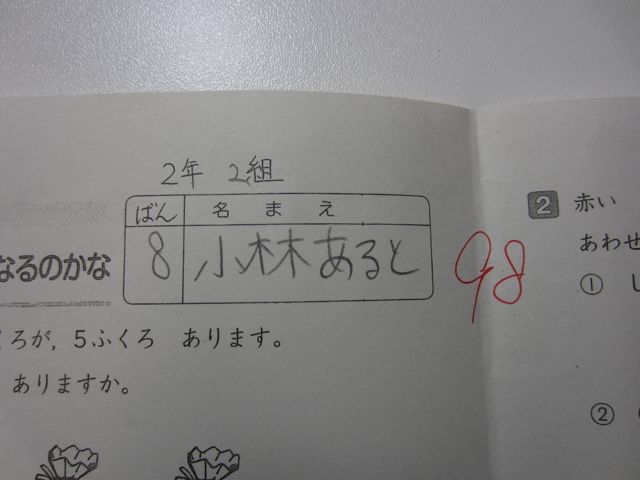 2年 2組
ばん 名まえ
8 小林あると
98
なるのかな
ろが,5ふくろ あります。
ありますか。
2 赤い
あわせ
①
②